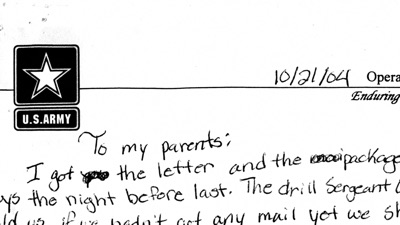 U.S.ARMY
10/21/04 Opera
Enduring
To my parents;
I got the letter and the package
ys the night before last. The drill Sergeant
ld us if we hadn't got any mail yet we sh